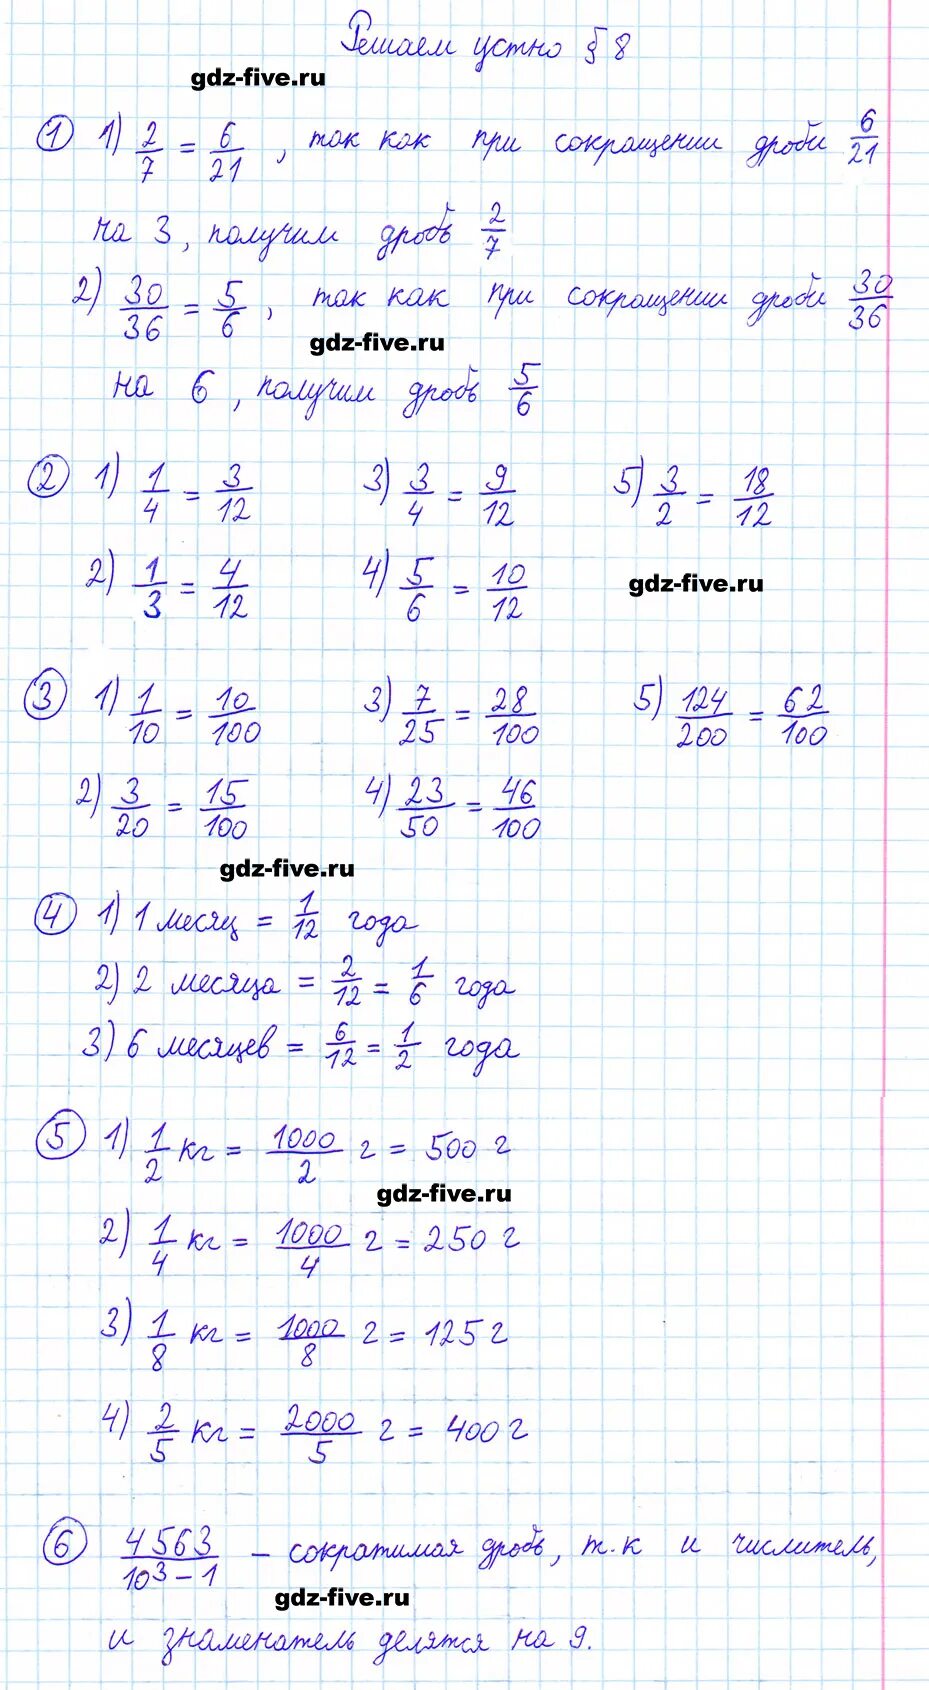 Решаем устно § 8
gdz-five.ru
① 1) 2/7 = 6/21 , так как при сокращении дроби 6/21
на 3, получим дробь 2/7
2) 30/36 = 5/6 , так как при сокращении дроби 30/36
gdz-five.ru
на 6 , получим дробь 5/6
② 1) 1/4 = 3/12 3) 3/4 = 9/12 5) 3/2 = 18/12
2) 1/3 = 4/12 4) 5/6 = 10/12
gdz-five.ru
③ 1) 1/10 = 10/100 3) 7/25 = 28/100 5) 124/200 = 62/100
2) 3/20 = 15/100 4) 23/50 = 46/100
gdz-five.ru
④ 1) 1 месяц = 1/12 года
2) 2 месяца = 2/12 = 1/6 года
3) 6 месяцев = 6/12 = 1/2 года
⑤ 1) 1/2 кг = 1000/2 г = 500 г
gdz-five.ru
2) 1/4 кг = 1000/4 г = 250 г
3) 1/8 кг = 1000/8 г = 125 г
4) 2/5 кг = 2000/5 г = 400 г
⑥ 4563/10³ – 1 – сократимая дробь, т.к и числитель,
gdz-five.ru
и знаменатель делятся на 9.